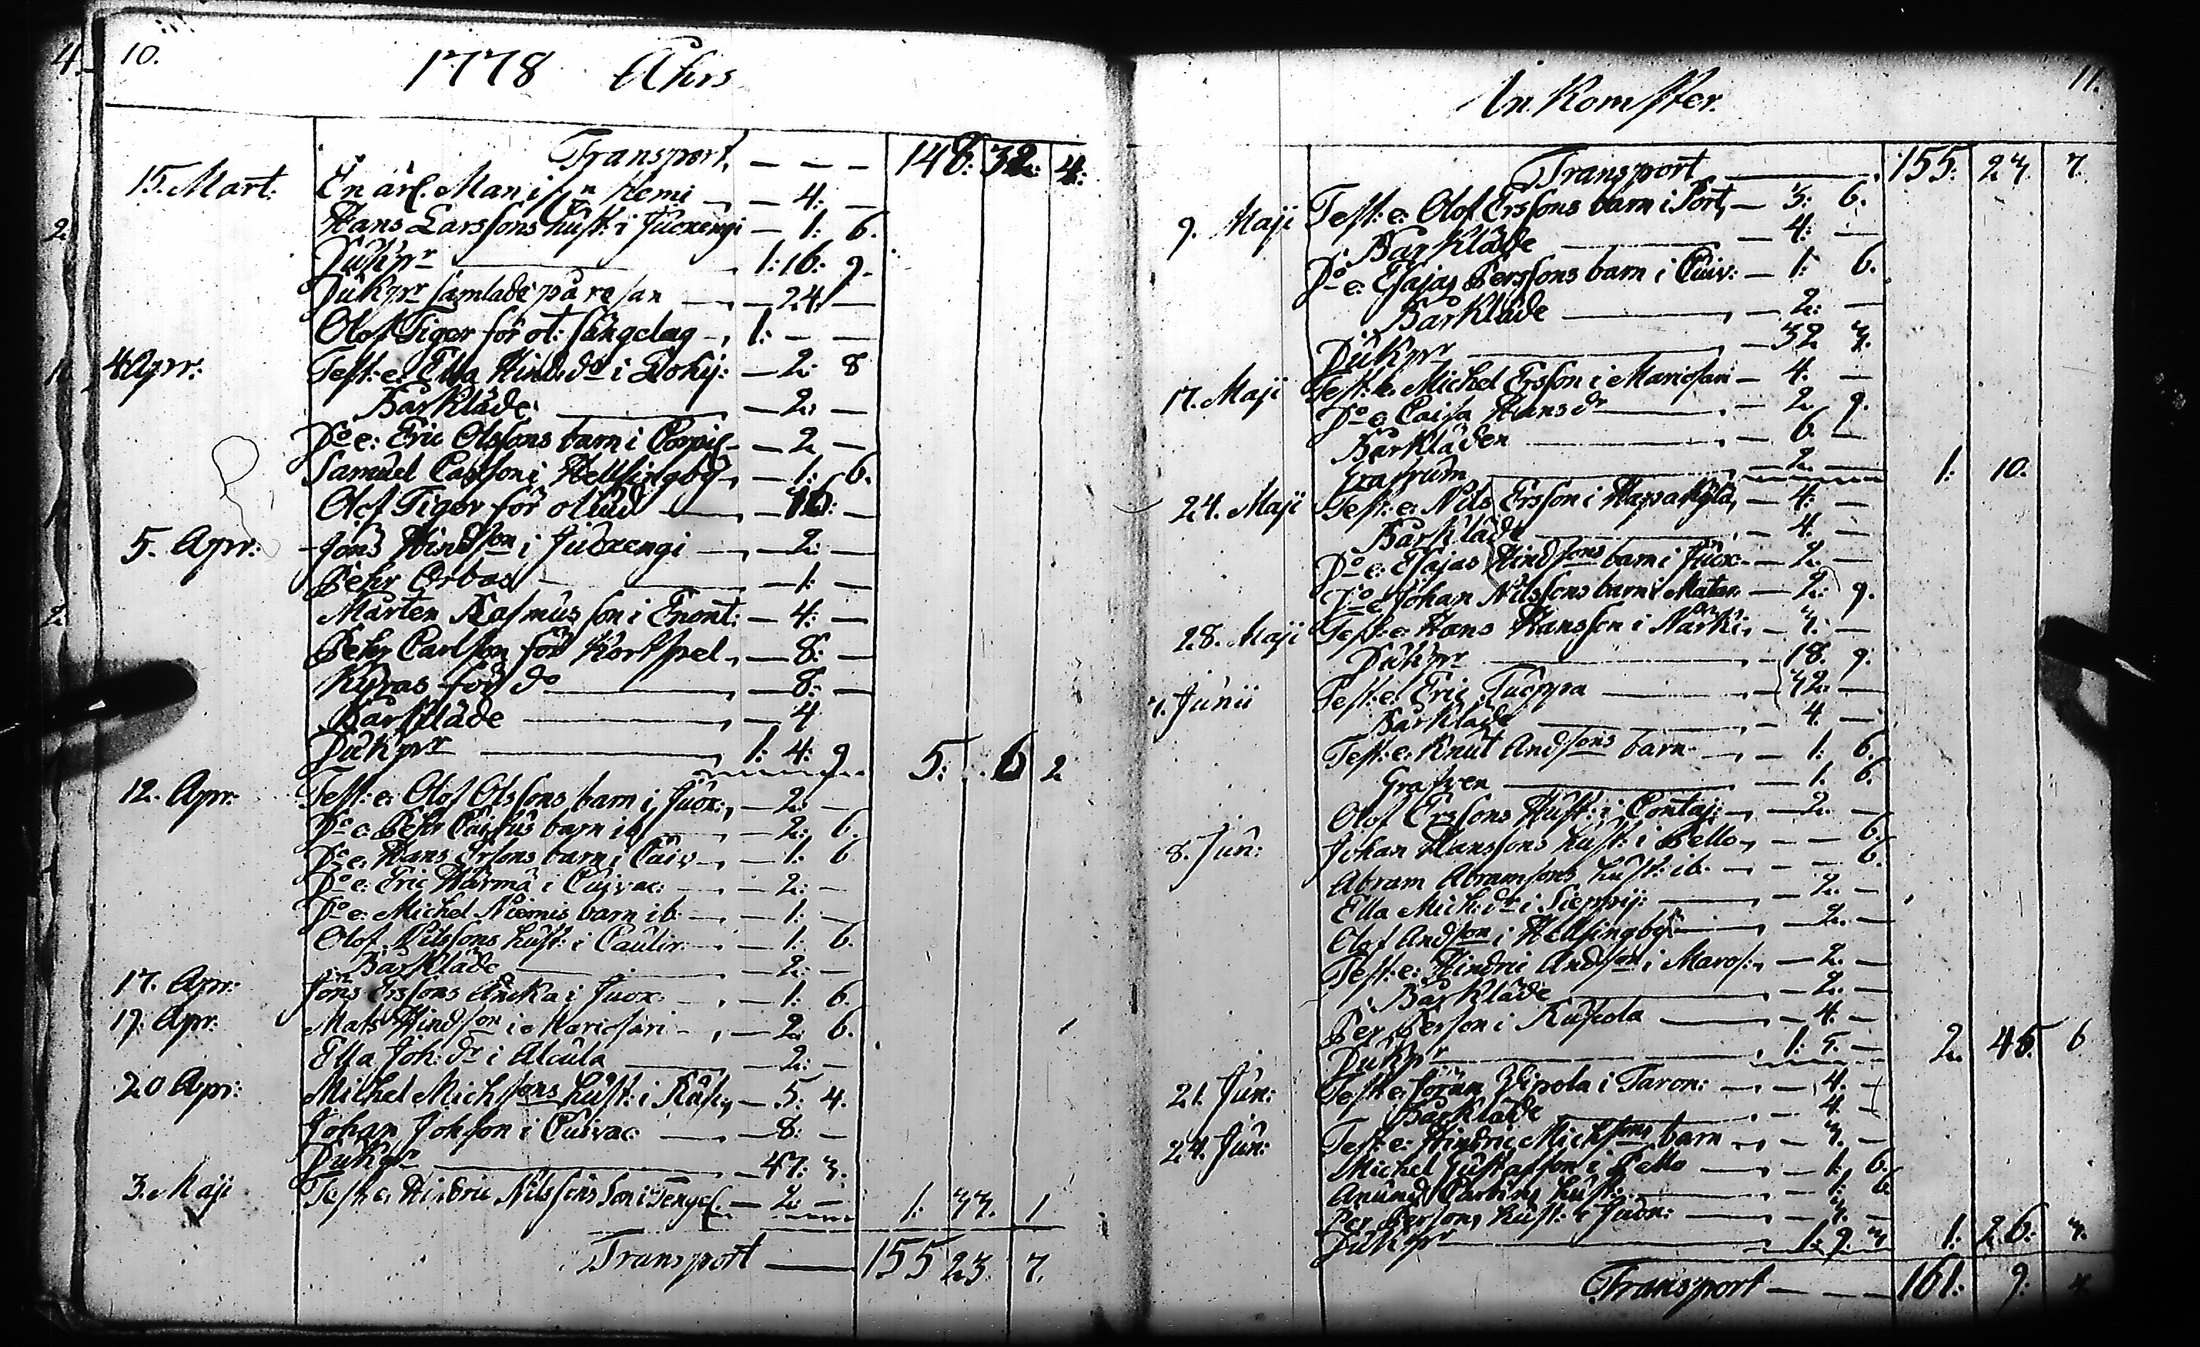 4.
10.
1778 Åhrs
Transport, — — — 148: 32: 4:
15. Mart: En ärl. Man i Kemi — 4: —
Hans Larssons hust: i Juoxengi — 1: 6.
Duk pr — 1: 16: 9.
Duk pr samlade på resan — 24: —
Olof Tiger för ol: sängelag — 1: — —
4 Apr: Test: e: Ella Hind: dr i Lohij: — 2: 8
Bårkläde — 2: —
Do e: Eric Olssons barn i — 2 —
Samuel i Hellsingby — 1: 6.
Olof Tiger för oliud — 16: —
5. Apr: Jöns Hindson i Juoxengi — 2: —
Pehr — 1: —
Mårten Rasmusson i Enont: — 4: —
Pehr Carlson för Kortspel — 8: —
för do — 8: —
Bårkläde — 4
Duk pr — 1: 4: 9 5: 6 2
12. Apr: Test: e: Olof Olssons barn i Juox: — 2: —
Do e: Pehr barn ib — 2: 6.
Do e: Hans Ersons barn i — 1: 6
Do e: Eric i — 2: —
Do e: Michel Niemis barn ib — 1: —
Olof Nilssons hust: i — 1: 6.
Bårkläde — 2: —
17. Apr: Jöns Erssons Enka i Juox — 1: 6.
19. Apr: Mats Hindson i Mariosari — 2: 6.
Ella Joh: dr i Alcula — 2: —
20 Apr: Michel Michsons hust: i — 5: 4.
Johan Johson i — 8: —
Duk pr — 47: 3:
3. Maji Test: e: Hindric Nilssons Son i — 2 — 1: 33. 1
Transport — 155 23. 7.
11.
In Komster.
Transport — 155: 23. 7.
9. Maji Test: e: Olof Erssons barn i Port, — 3: 6.
Bårkläde — 4: —
Do e: Esajas Perssons barn i — 1: 6.
Bårkläde — 2: —
Duk pr — 32 3.
17. Maji Test: e: Michel Ersson i Mariosari — 4. —
Do e: Caisa Hansdr — 2. 9.
Bårkläden — 6. —
Grafrum — 2. — 1: 10.
24. Maji Test: e: Nils Ersson i — 4: —
Bårkläde — 4. —
Do e: Esajas Hindsons barn i Juox — 2. —
Do e: Johan Nilssons barn i — 2: 9.
28. Maji Test: e: Hans Hansson i — 3. —
Duk pr — 18. 9.
7. Junii Test: e: Eric — 32. —
Bårkläde — 4. —
Test: e: Knut Andsons barn — 1: 6.
Grafven — 1. 6.
Olof Erssons Hust: i — 2. —
8. Jun: Johan Hanssons hust: i Pello — 6.
Abram Abramsons hust: ib. — 6.
Ella Mich: dr i — 2. —
Olof Andson i Hellsingby — 2. —
Test: e: Hindric Andson i Marios: — 2. —
Bårkläde — 2. —
Per Person i — 4. —
Duk pr — 1. 5. — 2. 45. 6
21. Jun: Test: e: i — 4. —
Bårkläde — 4. —
24. Jun: Test: e: Hindric Michsons barn — 3. —
Michel Gustafson i Pello — 1: 6.
Anund hust: — 1. 6.
Per Persons hust: i Juox: — 3. —
Duk pr — 1. 9. 3 1: 26. 3.
Transport — 161: 9. 4.